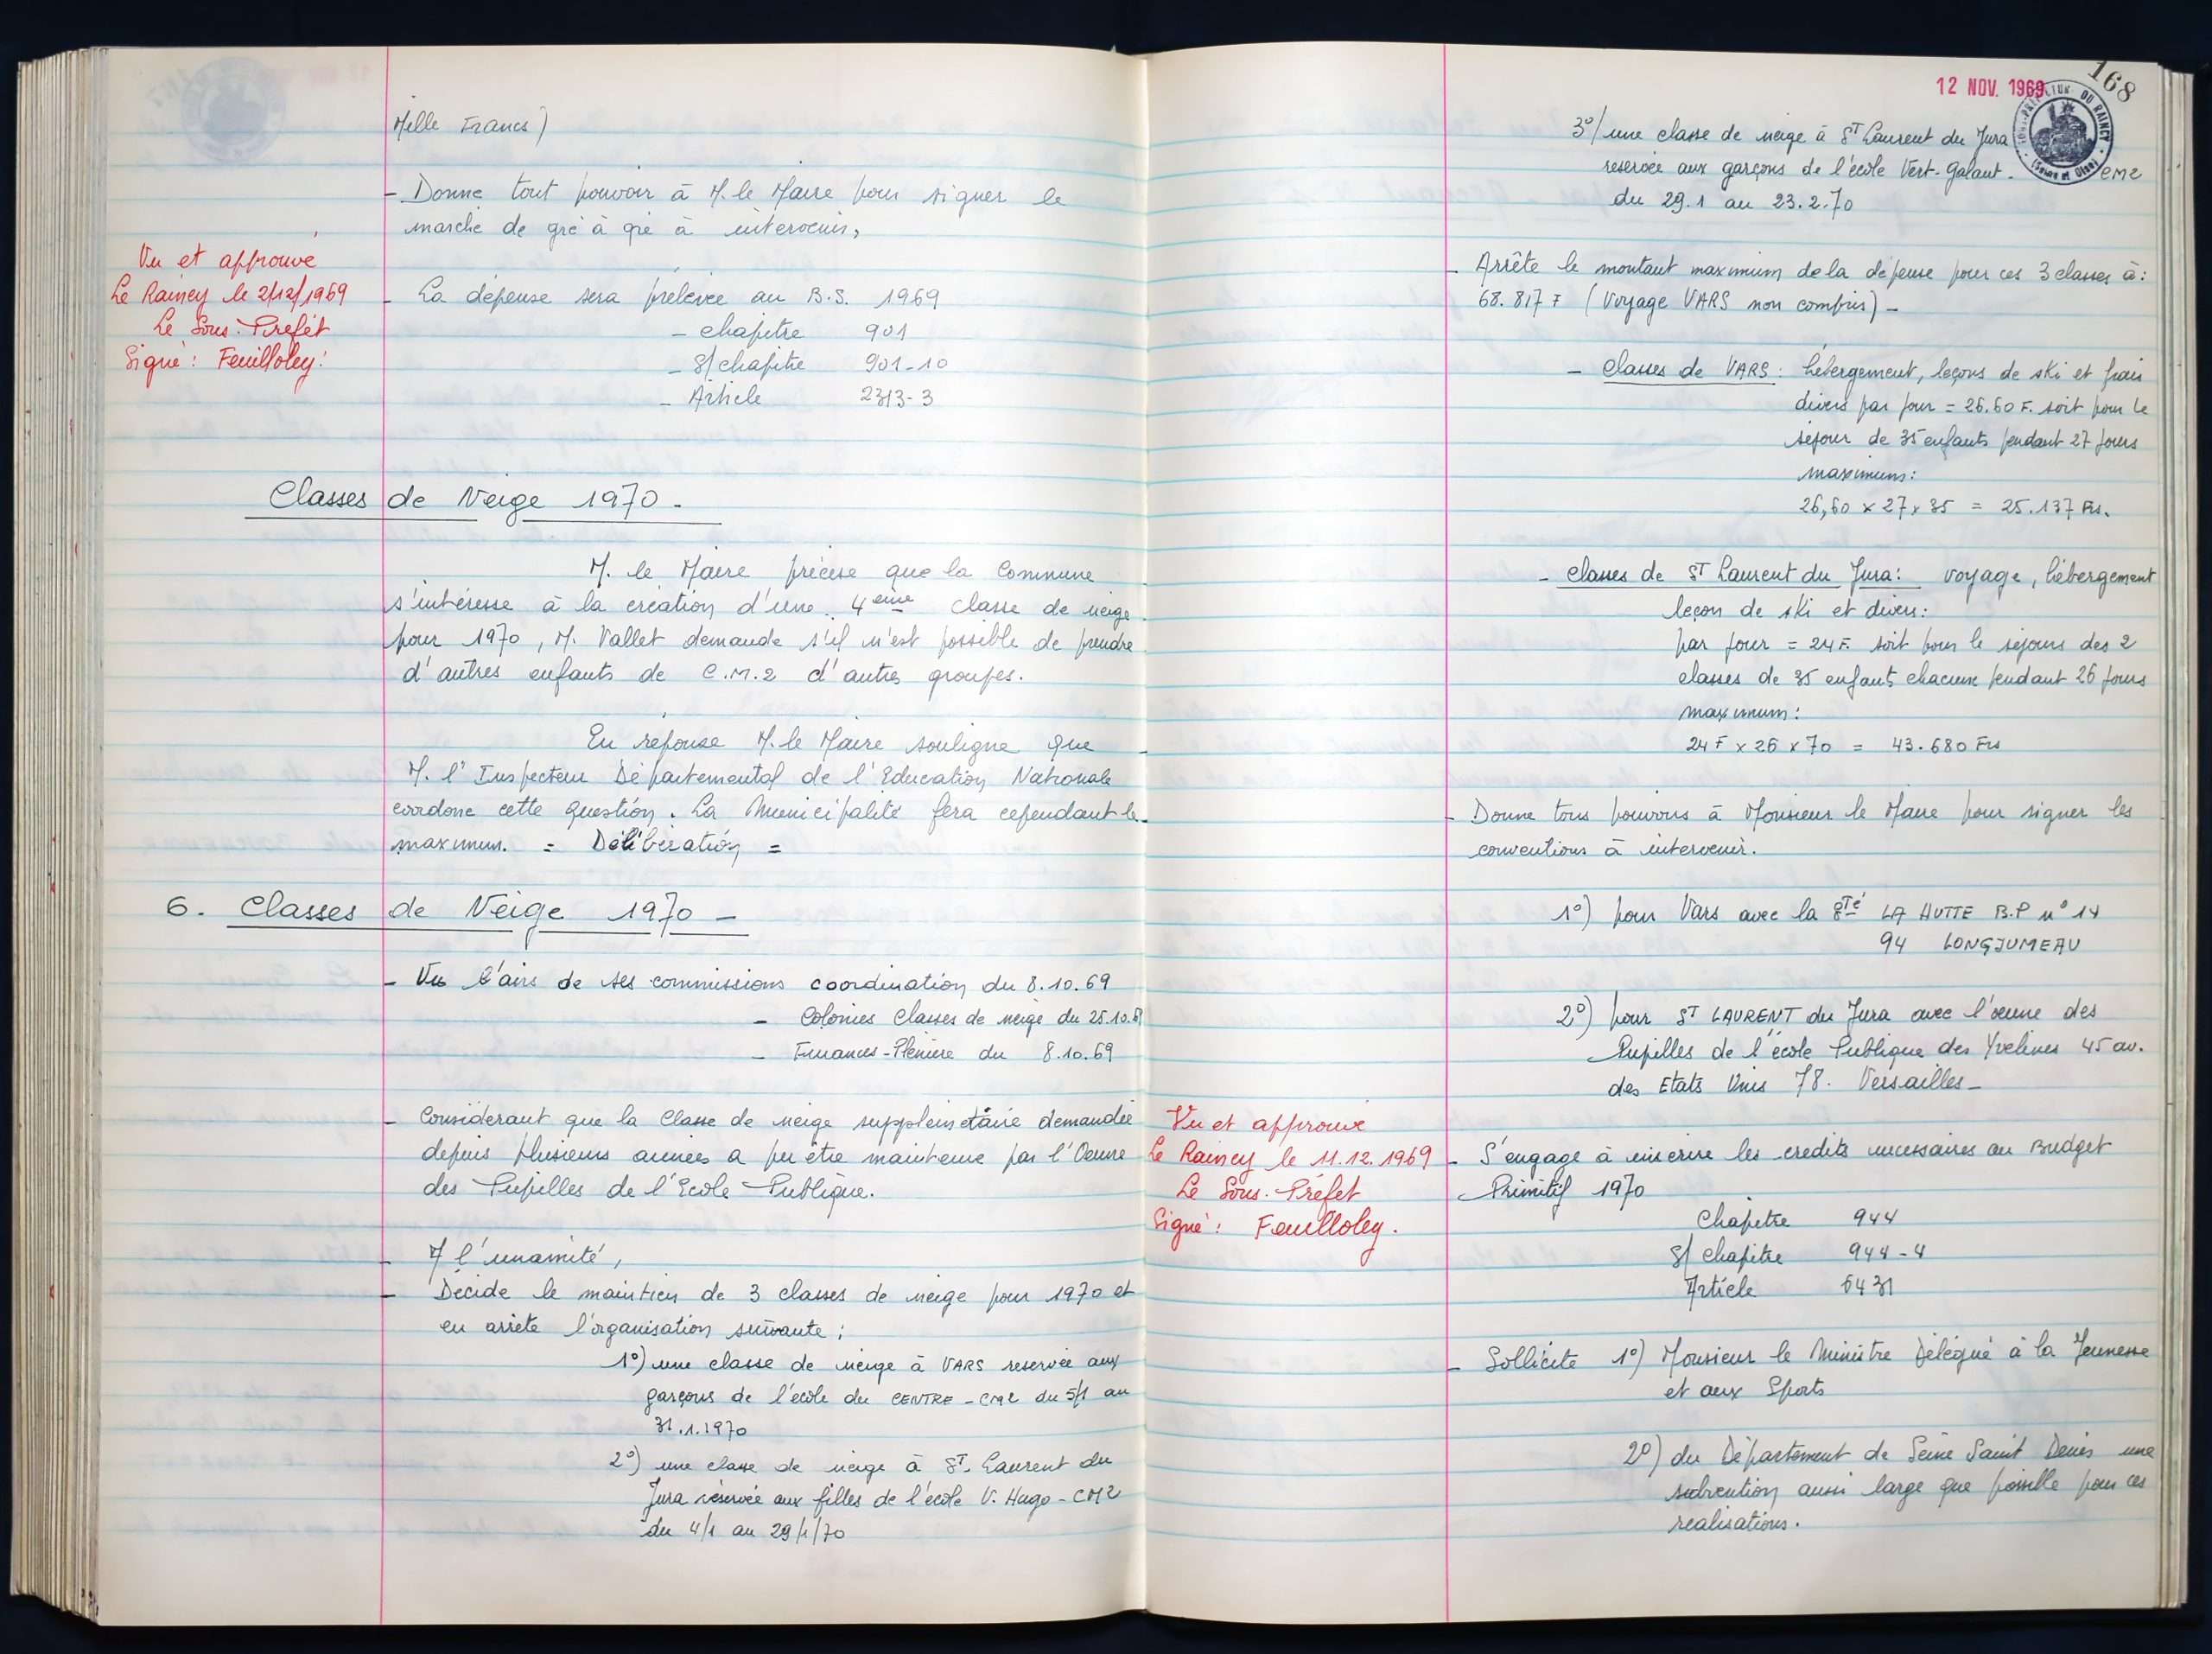 Mille Francs)
- Donne tout pouvoir à M. le Maire pour signer le
marché de gré à gré à intervenir,
Vu et approuvé
Le Raincy le 2/12/1969
Le Sous-Préfet
Signé : Feuilloley.
- La dépense sera prélevée au B.S. 1969
- chapitre 901
- S/chapitre 901-10
- Article 2313-3
Classes de Neige 1970.
M. le Maire précise que la Commune
s'intéresse à la création d'une 4ème classe de neige
pour 1970, M. Vallet demande s'il n'est possible de prendre
d'autres enfants de C.M.2 d'autres groupes.
En réponse M. le Maire souligne que
M. l'Inspecteur Départemental de l'Education Nationale
coordone cette question. La Municipalité fera cependant le
maximum. = Délibération =
6. Classes de Neige 1970 -
- Vu l'avis de ses commissions coordination du 8.10.69
- Colonies Classes de neige du 25.10.69
- Finances-Plénière du 8.10.69
- Considérant que la Classe de neige supplémetaire demandée
depuis plusieurs années a pu être maintenue par l'Oeuvre
des Pupilles de l'Ecole Publique.
- A l'unamité,
- Décide le maintien de 3 classes de neige pour 1970 et
en arrête l'organisation suivante :
1°) une classe de neige à VARS reservée aux
garçons de l'école du CENTRE - CM2 du 5/1 au
31.1.1970
2°) une classe de neige à ST. Laurent du
Jura réservée aux filles de l'école V. Hugo - CM2
du 4/1 au 29/1/70
12 NOV. 1969
168
SOUS-PREFECTURE DU RAINCY
(Seine et Oise)
3°/ une classe de neige à ST Laurent du Jura
reservée aux garçons de l'école Vert-Galant - CM2
du 29.1 au 23.2.70
- Arrête le montant maximum de la dépense pour ces 3 classes à :
68.817 F (Voyage VARS non compris) -
- Classes de VARS : hébergement, leçons de ski et frais
divers par jour = 26.60 F. soit pour le
séjour de 35 enfants pendant 27 jours
maximum :
26,60 x 27 x 35 = 25.137 Frs.
- Classes de ST Laurent du Jura : voyage, hébergement
leçon de ski et divers :
par jour = 24 F. soit pour le séjours des 2
classes de 35 enfants chacune pendant 26 jours
maximum :
24 F x 26 x 70 = 43.680 Frs
- Donne tous pouvoirs à Monsieur le Maire pour signer les
conventions à intervenir.
1°) pour Vars avec la Sté LA HUTTE B.P n° 14
94 LONGJUMEAU
2°) pour ST LAURENT du Jura avec l'œuvre des
Pupilles de l'école Publique des Yvelines 45 av.
des Etats Unis 78. Versailles -
Vu et approuvé
Le Raincy le 11.12.1969
Le Sous-Préfet
Signé : Feuilloley.
- S'engage à inscrire les crédits necessaires au Budget
Primitif 1970
Chapitre 944
S/ chapitre 944-4
Article 6431
- Sollicite 1°) Monsieur le Ministre Délégué à la Jeunesse
et aux Sports
2°) du Département de Seine Saint Denis une
subvention aussi large que possible pour ces
realisations.